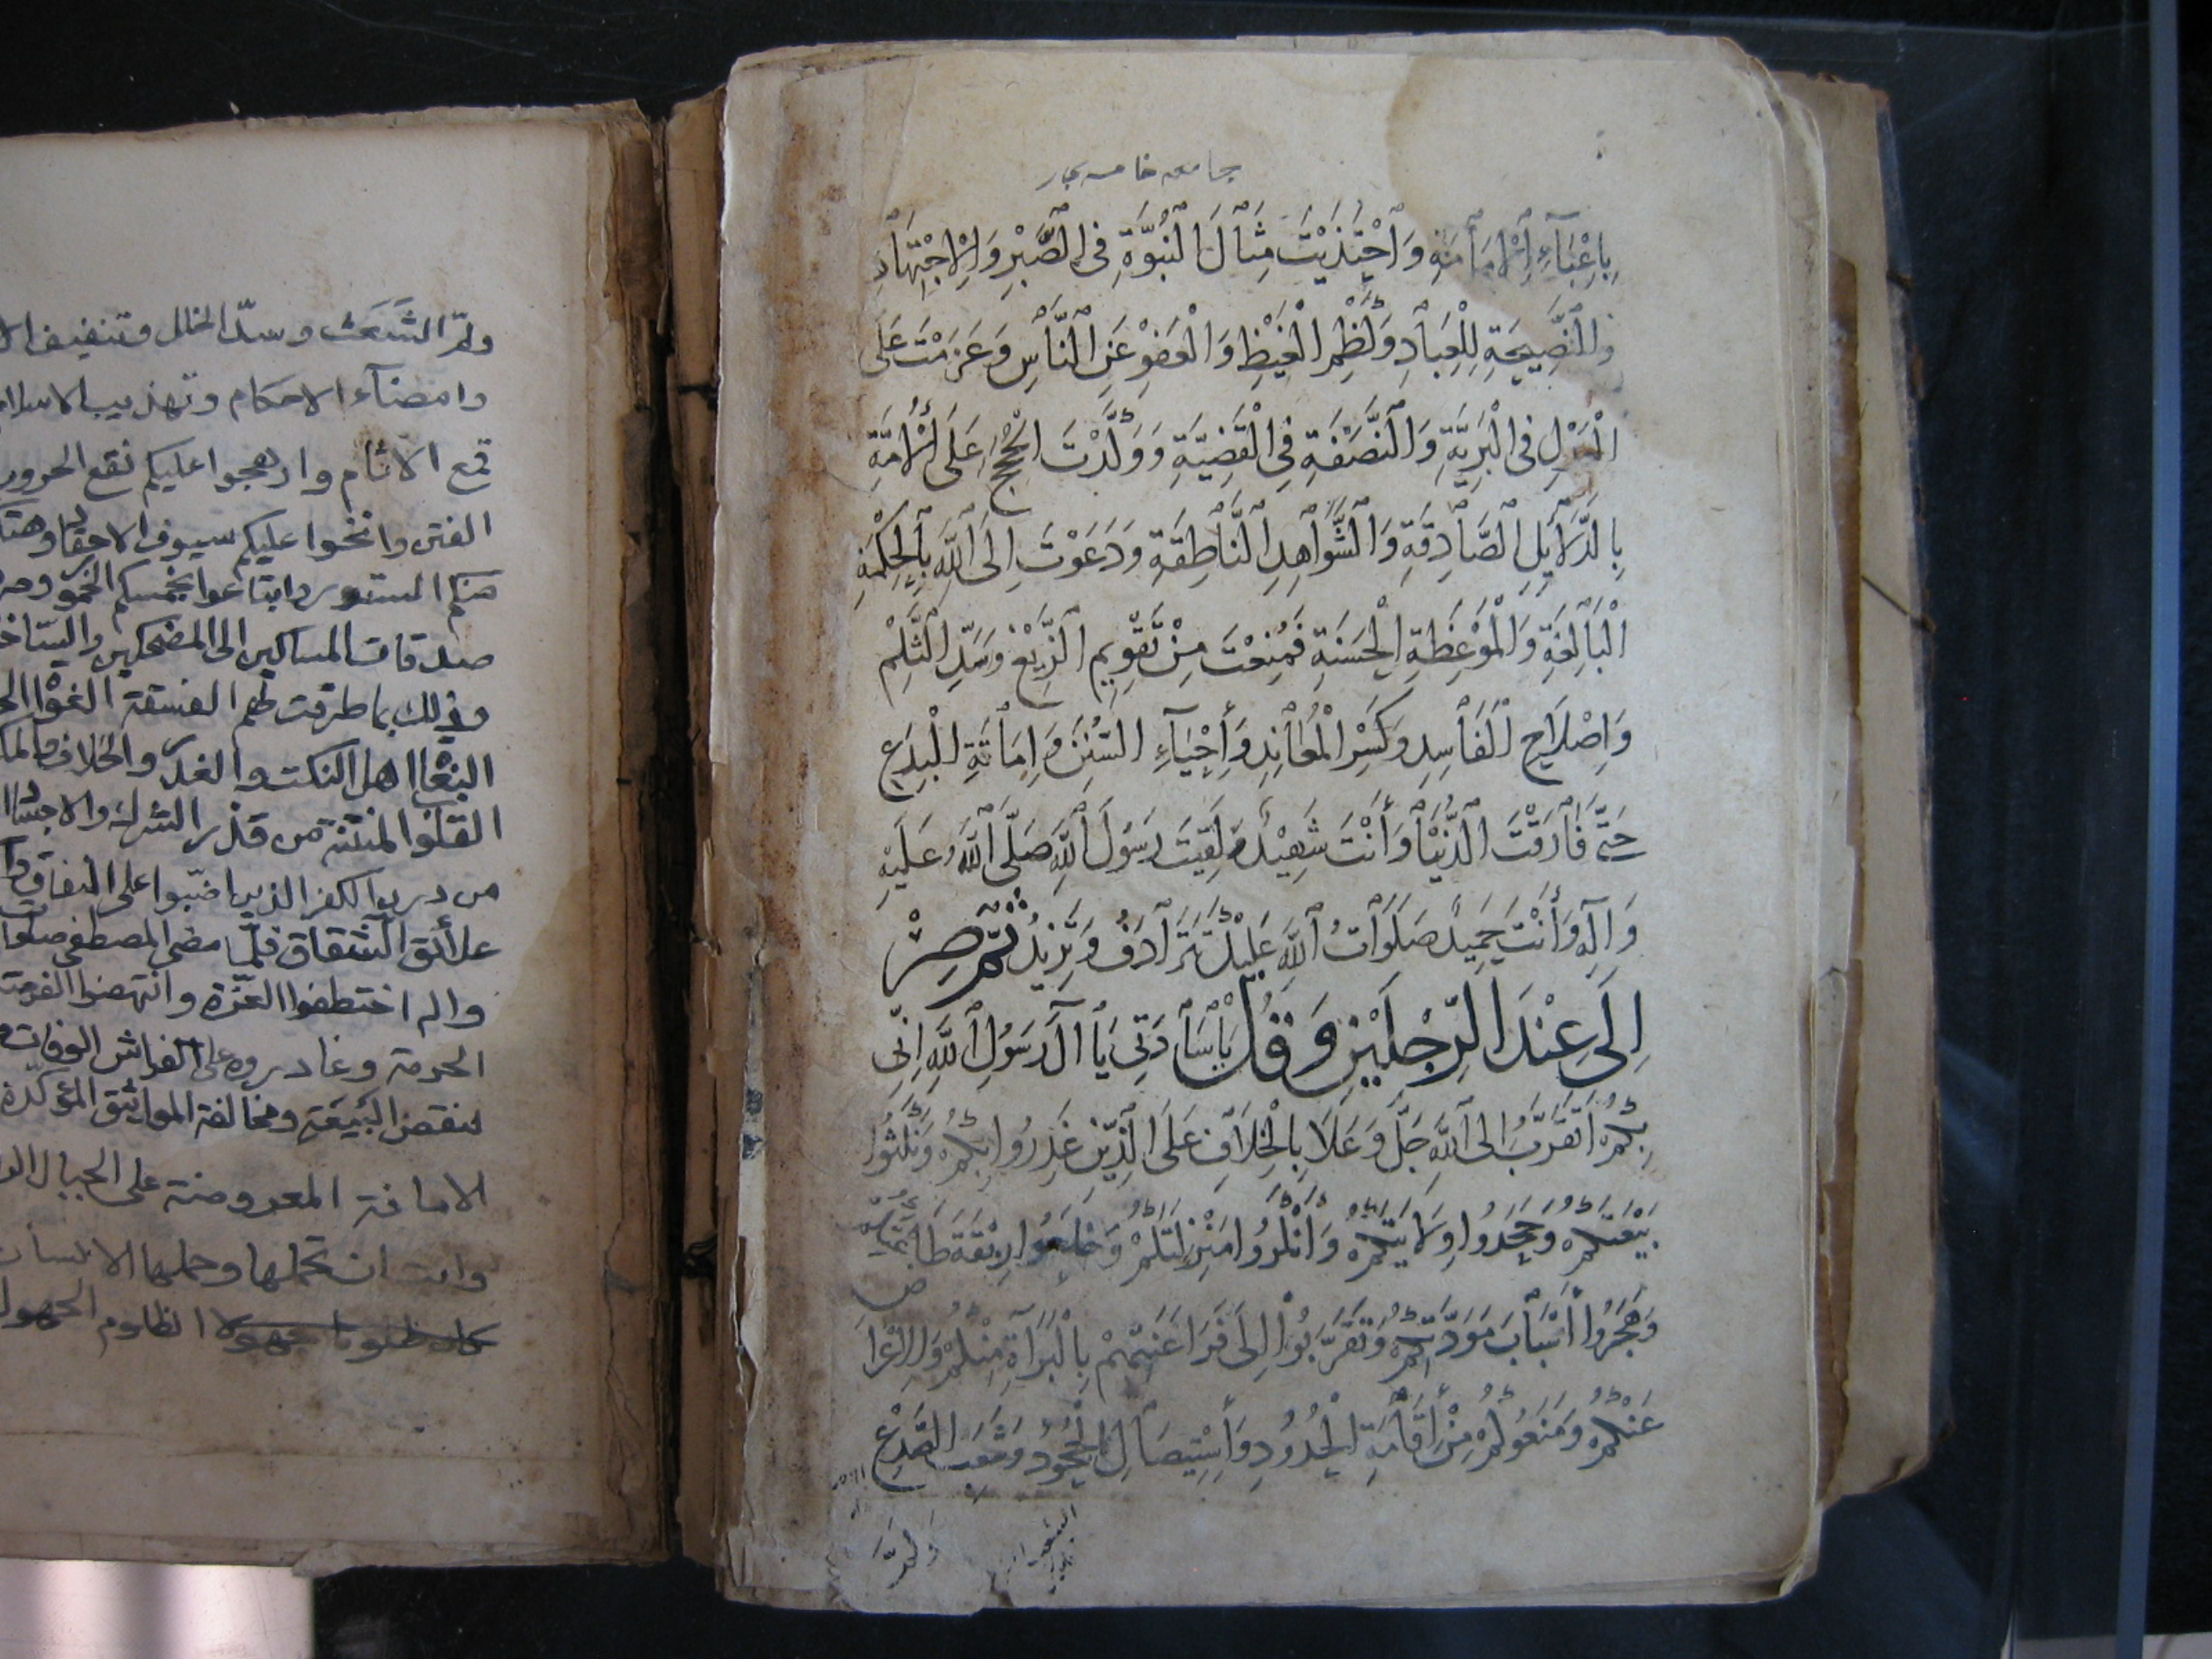 جامعه خامسه بحار
بِاَعْبَاءِ اْلاِمَامَةِ وَاحْتَذَيْتَ مِثَالَ النُّبُوَّةِ فِى الصَّبْرِ وَاْلاِجْتِهَادِ
وَالنَّصِيحَةِ لِلْعِبَادِ وَكَظْمِ الْغَيْظِ وَالْعَفْوِ عَنِ النَّاسِ وَعَزَمْتَ عَلَى
الْعَدْلِ فِى الْبَرِيَّةِ وَالنَّصَفَةِ فِى الْقَضِيَّةِ وَوَكَّدْتَ الْحُجَجَ عَلَى اْلاُمَّةِ
بِالدَّلاَيِلِ الصَّادِقَةِ وَالشَّوَاهِدِ النَّاطِقَةِ وَدَعَوْتَ اِلَى اللّهِ بِالْحِكْمَةِ
الْبَالِغَةِ وَالْمَوْعِظَةِ الْحَسَنَةِ فَمُنِعْتَ مِنْ تَقْوِيمِ الزَّيْغِ وَسَدِّ الثَّلْمِ
وَاِصْلاَحِ الْفَاسِدِ وَكَسْرِ الْمُعَانِدِ وَاِحْيَاءِ السُّنَنِ وَاِمَاتَةِ الْبِدَعِ
حَتّى فَارَقْتَ الدُّنْيَا وَأَنْتَ شَهِيْدٌ وَلَقِيتَ رَسُولَ اللّهِ صَلَّى اللّهُ عَلَيْهِ
وَالِهِ وَأَنْتَ حَمِيدٌ صَلَوَاتُ اللّهِ عَلَيْكَ تَتَرَادَفُ وَتَزِيدُ ثُمَّ صِرْ
اِلَى عِنْدَ الرِّجْلَيْنِ وَقُلْ يَا سَادَتِى يَا آلَ رَسُولِ اللّهِ اِنِّى
بِكُمْ اَتَقَرَّبُ اِلَى اللّهِ جَلَّ وَعَلاَ بِالْخِلاَفِ عَلَى الَّذِينَ غَدَرُوا بِكُمْ وَنَكَثُوا
بَيْعَتَكُمْ وَجَحَدُوا وِلاَيَتَكُمْ وَأَنْكَرُوا مَنْزِلَتَكُمْ وَخَلَعُوا رِبْقَةَ طَاعَتِكُمْ
وَهَجَرُوا أَسْبَابَ مَوَدَّتِكُمْ وَتَقَرَّبُوا اِلَى فَرَاعِنَتِهِمْ بِالْبَرَاءَةِ مِنْكُمْ وَاْلاِعْرَاض
عَنْكُمْ وَمَنَعُوكُمْ مِنْ اِقَامَةِ الْحُدُودِ وَاِسْتِيصَالِ الْجُحُودِ وَشَعْبِ الصَّدْعِ
وَلَمِّ
ولمّ الشَعَث وسدّ الخلل وتثقيف الا
وامضاء الاحكام وتهذيب الاسلام
قمع الاثام وارهجوا عليكم نقع الحرور
الفتن وانحوا عليكم سيوف الاحقاد وهتكوا
منكم الستور وابتاعوا بخمسكم الخمور وصر
صدقات المساكين الى المضحكين والساخر
وذلك بما طرقت لهم الفسقة الغواة الح
البغاة اهل النكث والغدر والخلاف والمك
القلوب المنتنة من قذر الشرك والاجساد
من درن الكفر الذين اضبّوا على النفاق وا
علائق الشقاق فلمّا مضى المصطفى صلوات
واله اختطفوا الغرّة وانتهزوا الفرصة
الحرمة وغادروه على الفراش الوفات
لنقض البَيعَة ومخالفة المواثيق المؤكدّة
الامانة المعروضة على الجبال الر
وابت ان تحملها وحملها الانسان
الظلوم الجهول